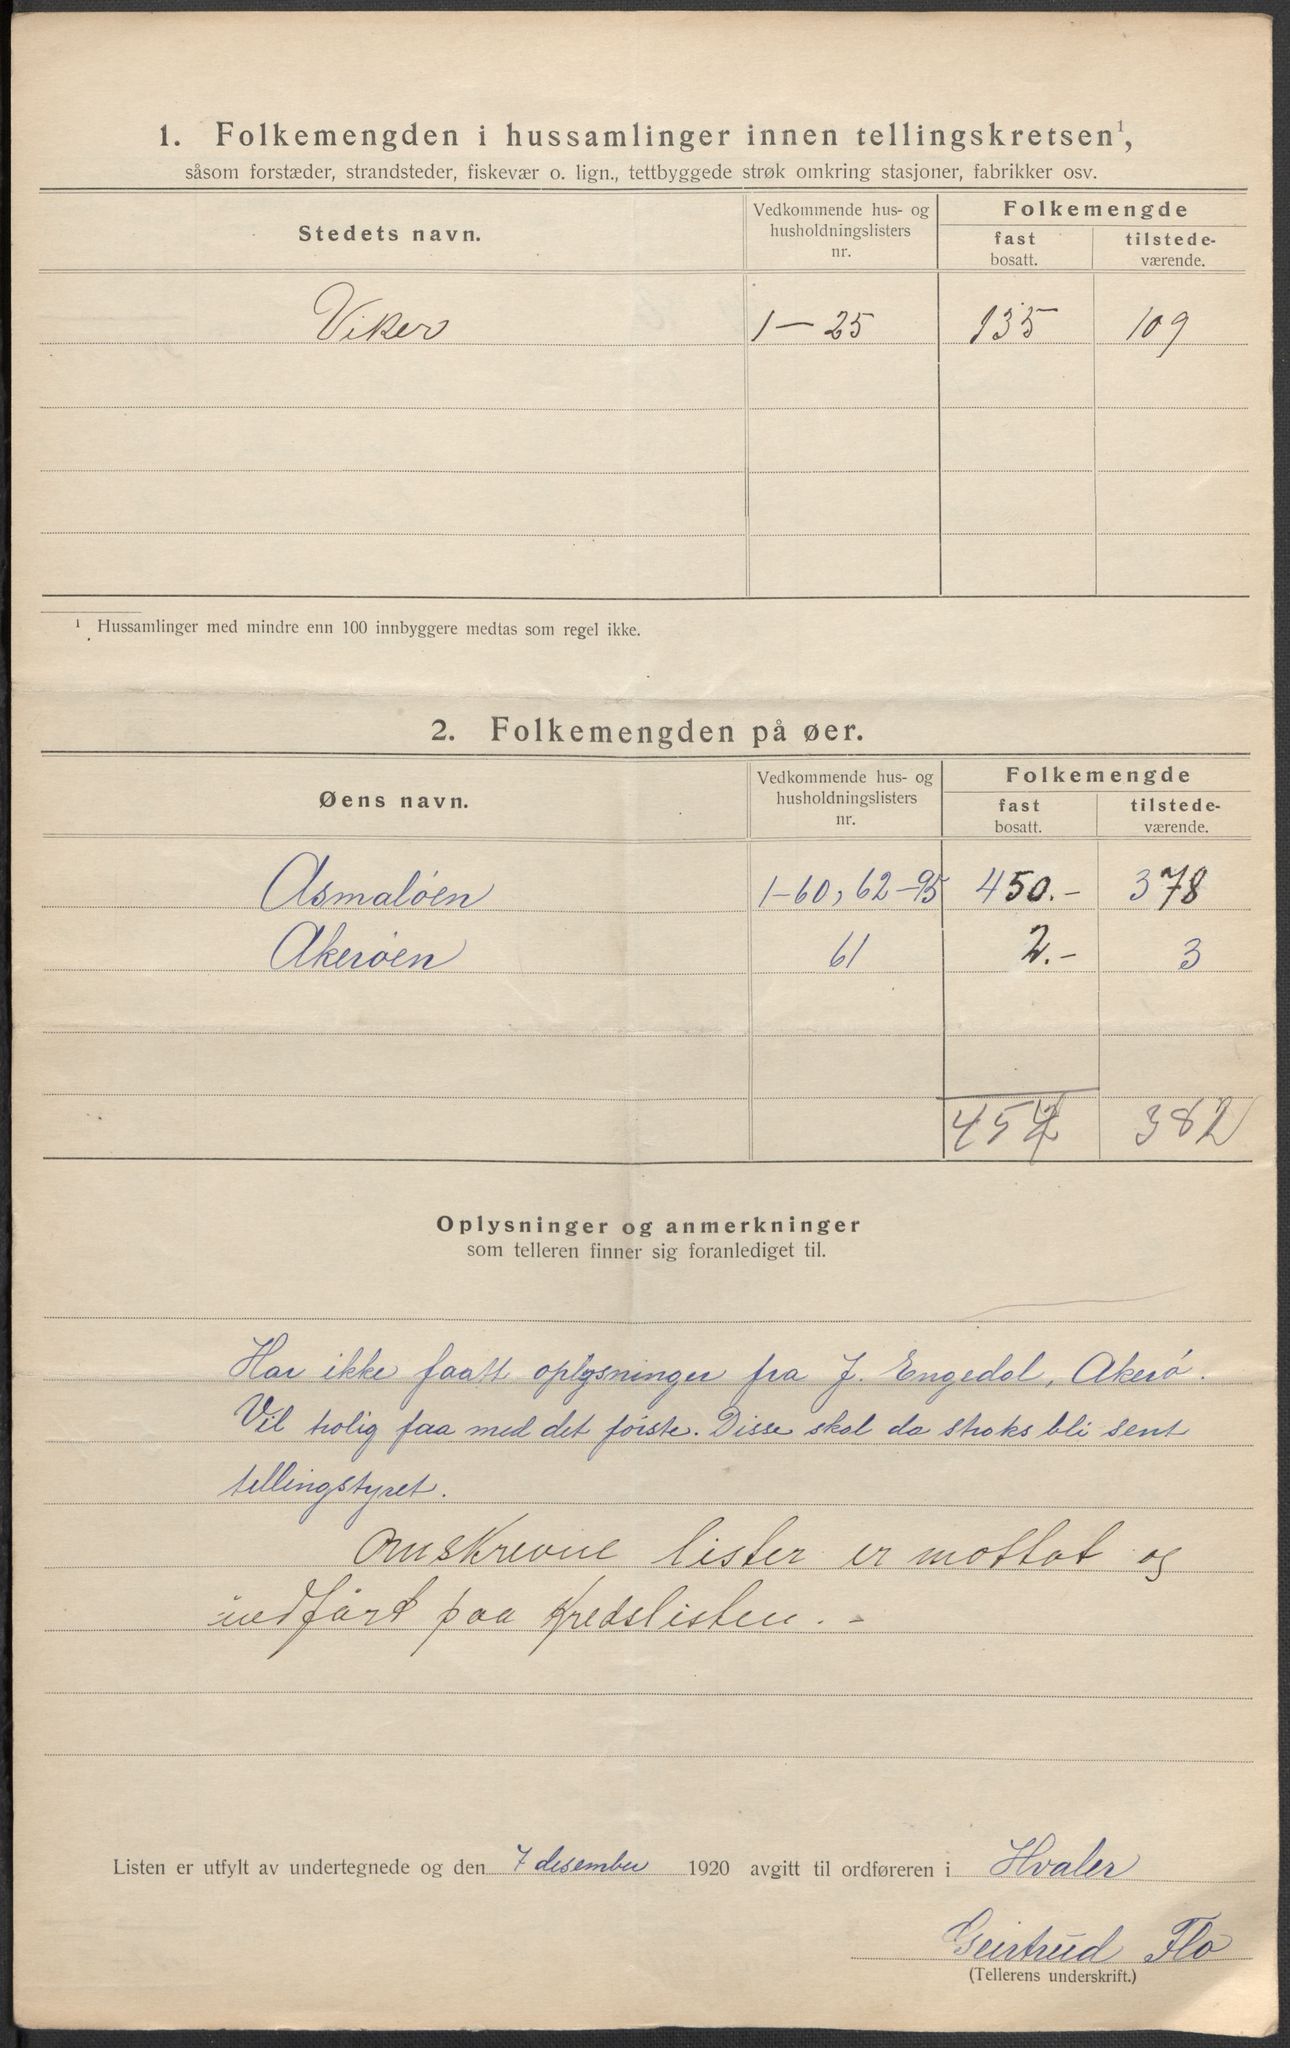 1. Folkemengden i hussamlinger innen tellingskretsen¹,
såsom forstæder, strandsteder, fiskevær o. lign., tettbyggede strøk omkring stasjoner, fabrikker osv.
Stedets navn.
Vedkommende hus- og
husholdningslisters
nr.
Folkemengde
fast
bosatt.
tilstede-
værende.
Viker 1–25 135 109
¹ Hussamlinger med mindre enn 100 innbyggere medtas som regel ikke.
2. Folkemengden på øer.
Øens navn.
Vedkommende hus- og
husholdningslisters
nr.
Folkemengde
fast
bosatt.
tilstede-
værende.
Asmaløen 1–60, 62–95 450.- 378
Akerøen 61 2.- 3
382
Oplysninger og anmerkninger
som telleren finner sig foranlediget til.
Har ikke faatt oplysninger fra J. Engedal, Akerø.
Vil trolig faa med det første. Disse skal da straks bli sent
tellingstyret.
Omskrevne lister er mottat og
indført paa Kredslisten. -
Listen er utfylt av undertegnede og den 7 desember 1920 avgitt til ordføreren i Hvaler
Geirtrud Flo
(Tellerens underskrift.)